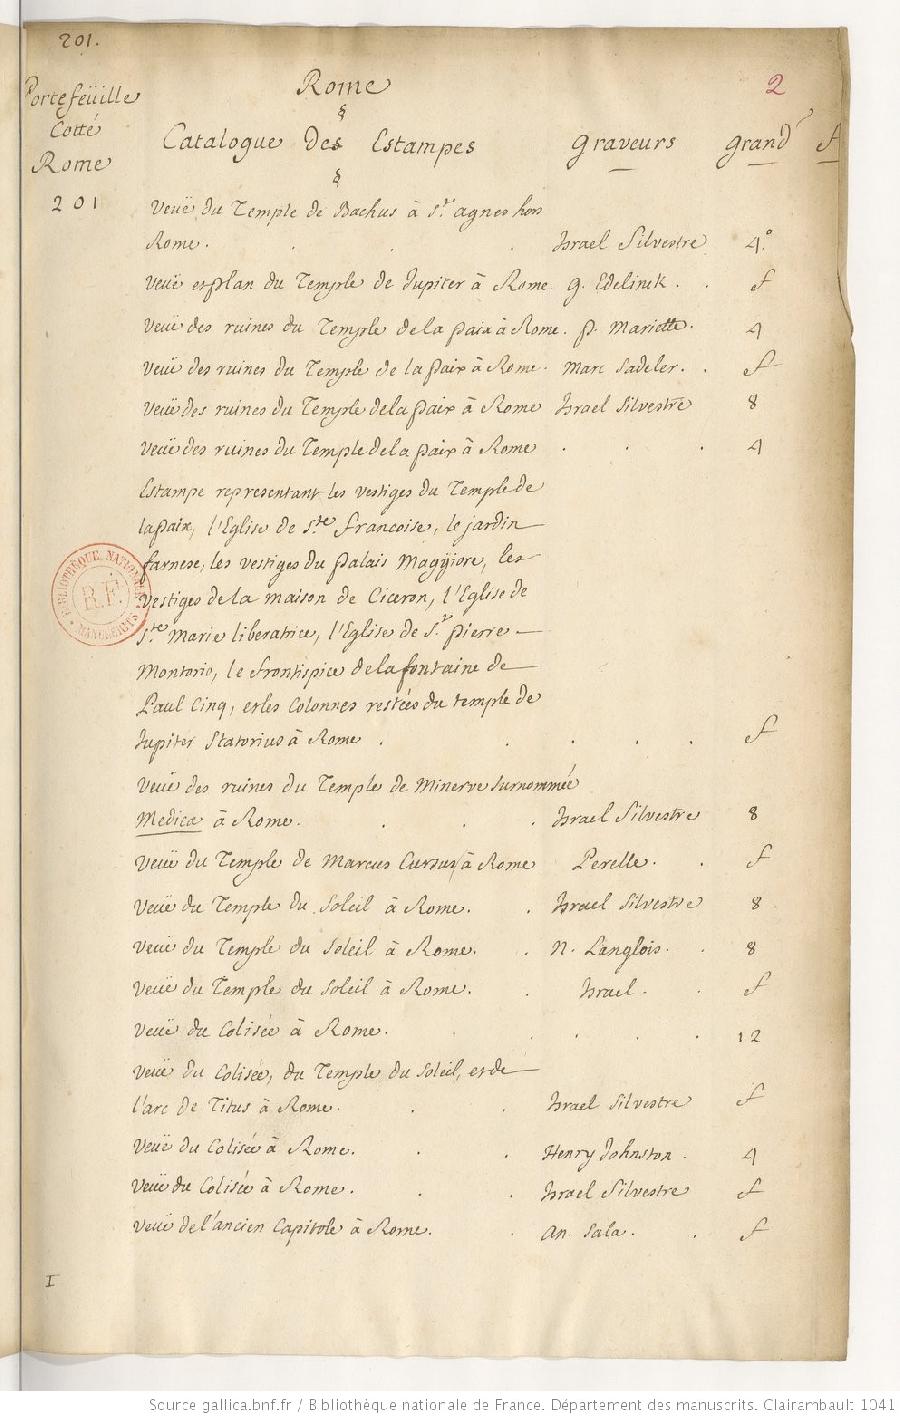 201.
2
Portefeüille
Cotté
Rome
201
Rome
§
Catalogue Des Estampes Graveurs Grand.r f
§
Veuë du Temple de Bachus à S.te agnes hors
Rome. . . . Israel Silvestre 4.º
Veuë et plan du Temple de Jupiter à Rome g. Edelinck . . f
Veuë des ruines du Temple de la paix à Rome. p. Mariette. 4
Veuë des ruines du Temple de la paix à Rome. Marc Sadeler. . f
Veuë des ruines du Temple de la paix à Rome Israel Silvestre 8
Veuë des ruines du Temple de la paix à Rome . . . 4
Estampe representant les vestiges du Temple de
la paix, l'Eglise de S.te francoise, le jardin
farnese, les vestiges du palais Maggiore, les
vestiges de la maison de Ciceron, l'Eglise de
S.te Marie liberatrice, l'Eglise de S.t pierre
Montorio, le frontispice de la fontaine de
Paul Cinq, et les Colonnes restées du temple de
Jupiter Statorius à Rome . . . . . f
Veuë des ruines du Temple de Minerve surnommée
Medica à Rome. . . . Israel Silvestre 8
Veuë du Temple de Marcus Cursus à Rome Perelle. . f
Veuë du Temple du Soleil à Rome. . Israel Silvestre 8
Veuë du Temple du Soleil à Rome. . N. Langlois. . 8
Veuë du Temple du Soleil à Rome. . Israel. . f
Veuë du Colisée à Rome. . . . . 12
Veuë du Colisée, du Temple du Soleil, et de
l'arc de Titus à Rome. . . Israel Silvestre f
Veuë du Colisée à Rome. . . Henry Johnston . 4
Veuë du Colisée à Rome. . . Israel Silvestre f
Veuë de l'ancien Capitole à Rome. . An Sala. . f
I
BIBLIOTHEQUE NATIONALE
R.F.
MANUSCRITS
Source gallica.bnf.fr / Bibliothèque nationale de France. Département des manuscrits. Clairambault 1041